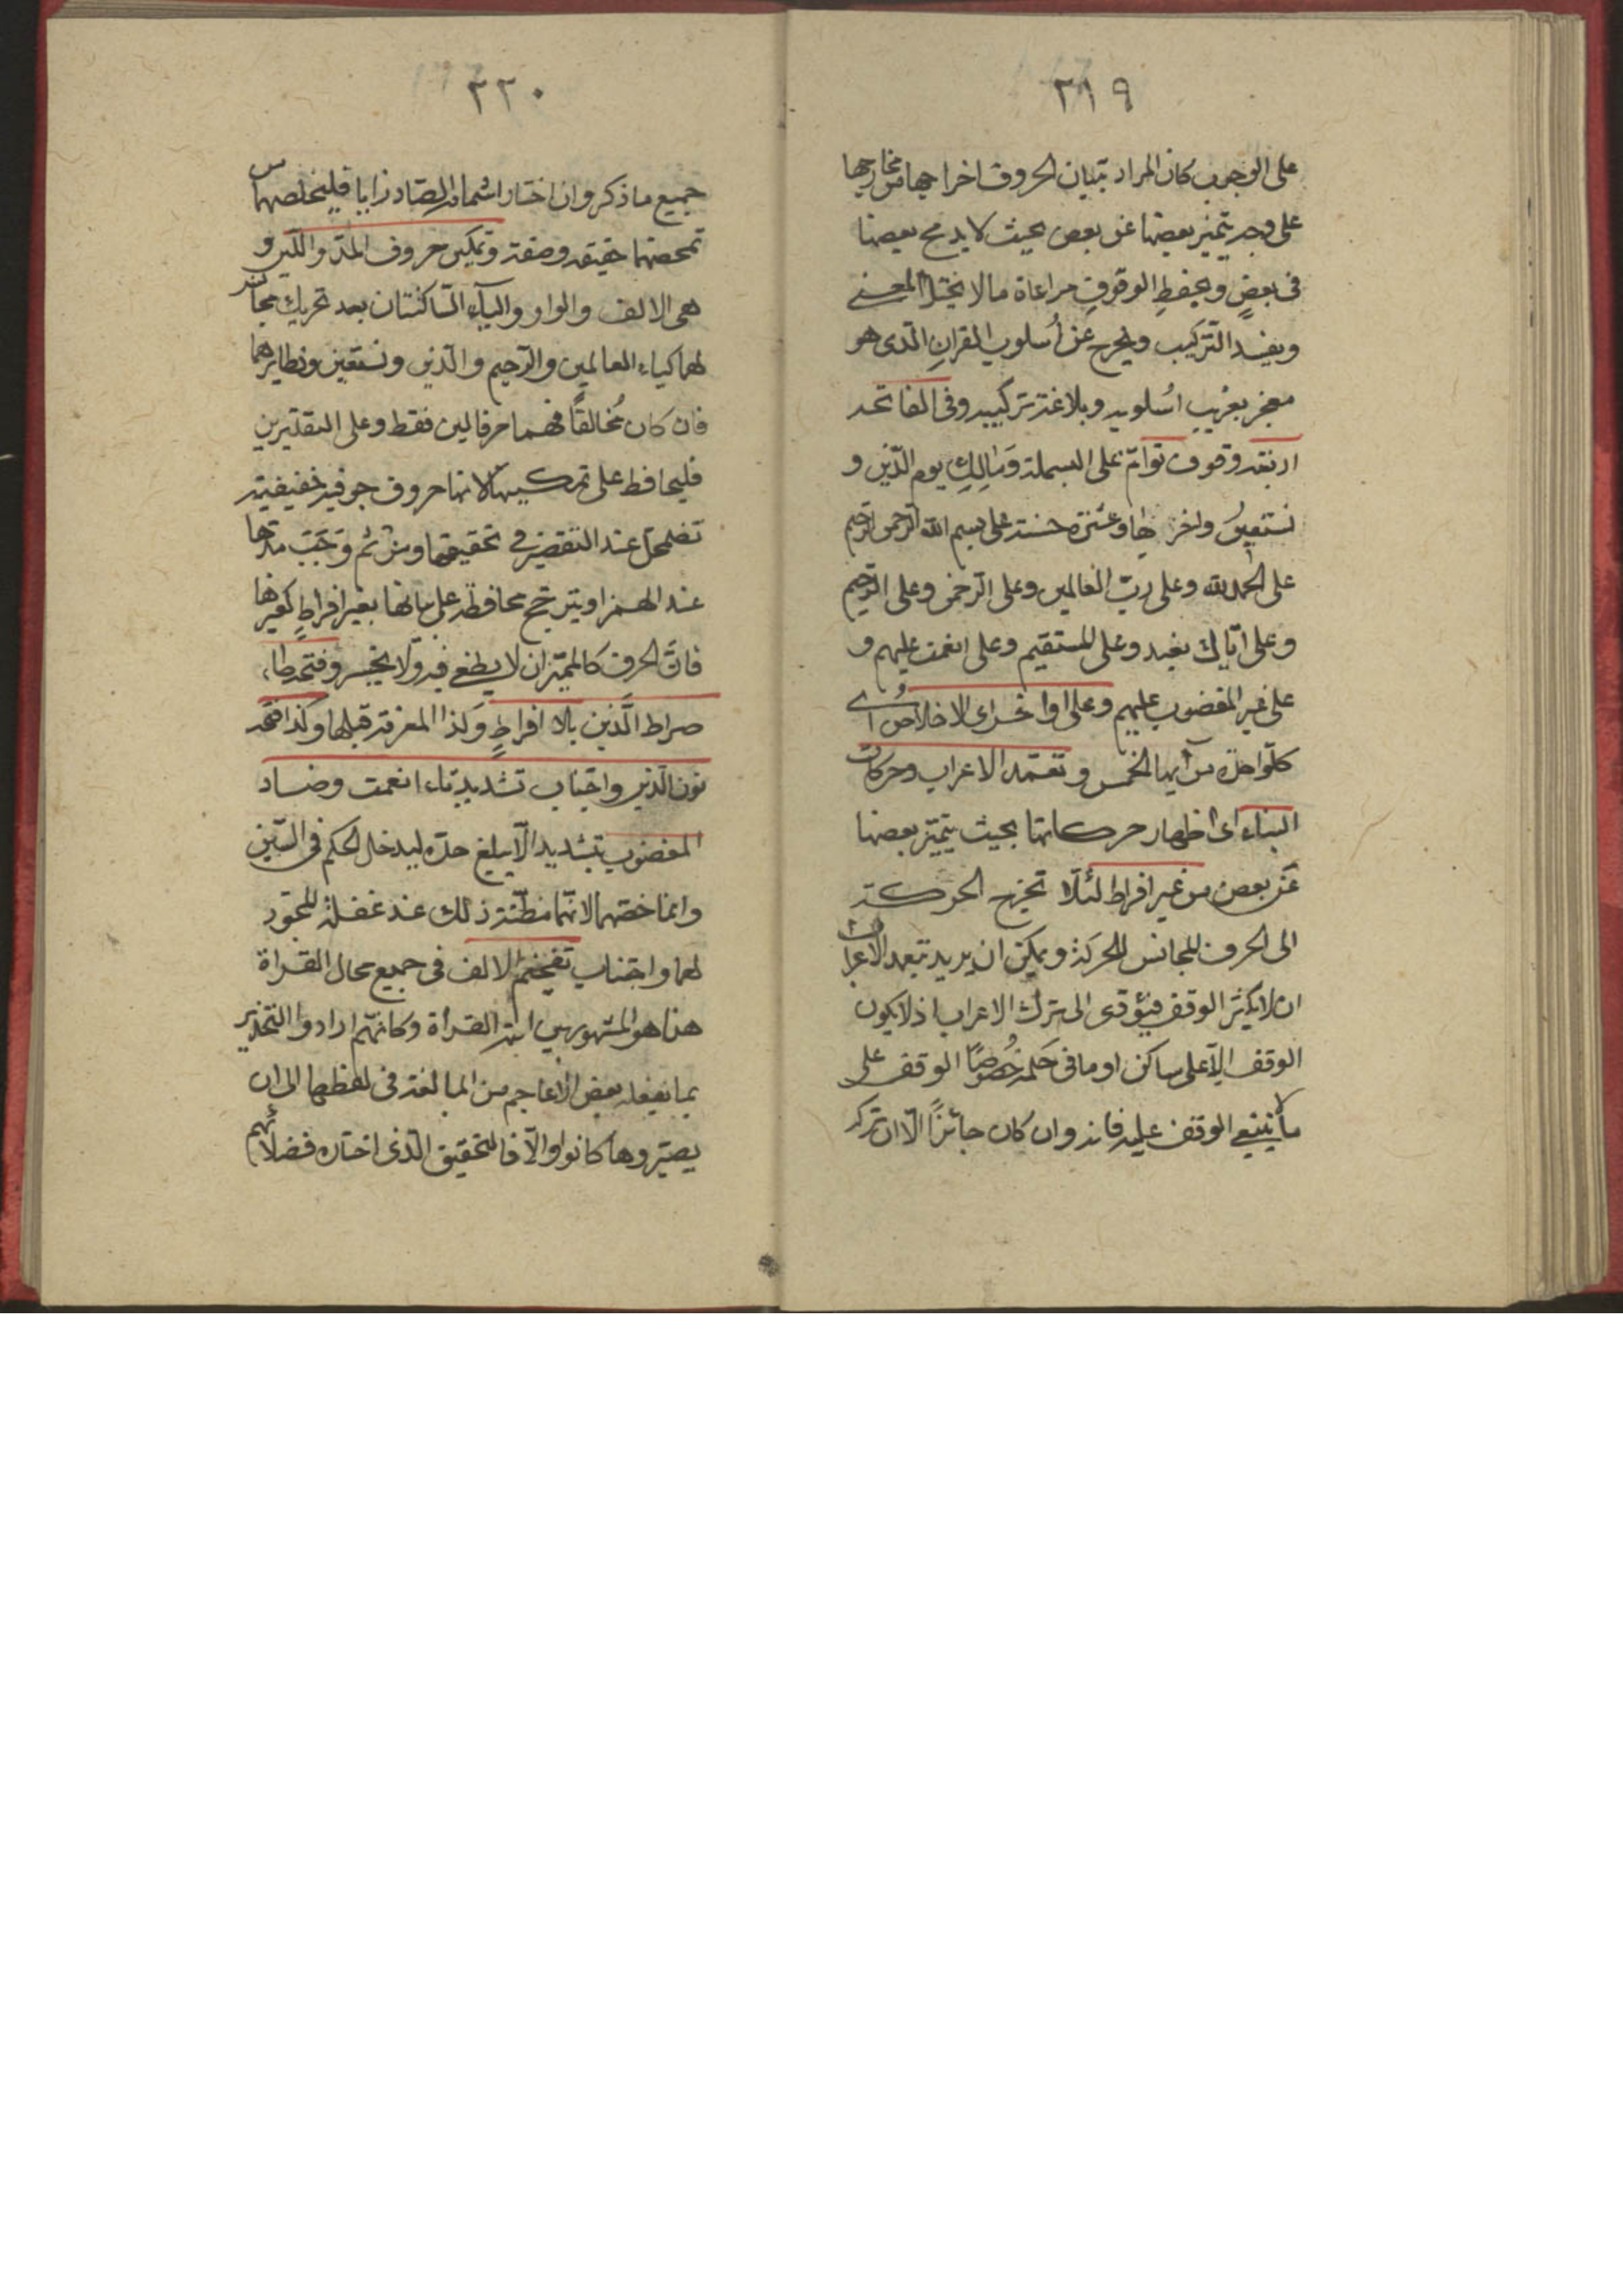 ٣١٩
على الوجوب كان المراد بتبيان الحروف اخراجها من مخارجها
على وجه يتميز بعضها عن بعض بحيث لا يدمج بعضها
فى بعض وبحفظ الوقوف مراعاة ما لا يختل المعنى
ويفسد التركيب ويخرج عن أسلوب القران الّذى هو
معجز بغريب اسلوبه وبلاغة تركيبه وفى الفاتحة
اربعة وقوف توامّ على البسملة ومالك يوم الدّين و
نستعين واخرها وعشرة حسنة على بسم الله الرحمن الرحيم
على الحمد لله وعلى ربّ العالمين وعلى الرّحمن وعلى الرّحيم
وعلى ايّاك نعبد وعلى المستقيم وعلى انعمت عليهم و
على غير المغضوب عليهم وعلى اواخر اى الاخلاص اى
كلّ واحدة من آيها الخمس وتعمّد الاعراب وحركات
البناء اى اظهار حركاتها بحيث يتميّز بعضها
عن بعض من غير افراط لئلّا تخرج الحركة
الى الحرف المجانس للحركة ويمكن ان يريد بتعمد الاعراب
ان لا يكثر الوقف فيؤدى الى ترك الاعراب اذ لا يكون
الوقف الّا على ساكن او ما فى حكمه خصوصًا الوقف على
ما لا ينبغى الوقف عليه فانه وان كان جائزًا الّا ان تركه
٣٢٠
جميع ما ذكر وان اختار اشمام الصّاد زايا فليخلصها من
تمحضها حقيقة وصفة وتمكين حروف المدّ واللّين و
هى الالف والواو والياء السّاكنتان بعد تحريك مجانس
لهما كياء العالمين والرّحيم والّذين ونستعين ونظايرهما
فان كان مُخالفًا فهما حرفا لين فقط وعلى التقديرين
فليحافظ على تمكينها لانها حروف جوفيه خفيفة
تضمحل عند التقصير فى تحقيقها ومن ثم وجب مدها
عند الهمز او يترجح محافظة على بيانها بغير افراط كغيرها
فانّ الحرف كالميزان لا يطغى فيه ولا يخسر وفتحة طاء
صراط الّذين بلا افراط وكذا المعرفة قبلها وكذا فتحة
نون الّذين واجتناب تشديد تاء انعمت وضاد
المغضوب تشديد الّا يبلغ حدّه ليدخل الحكم فى السّين
وانما خصّهما لانهما مظنّة ذلك عند غفلة المجوّد
لهما واجتناب تفخيم الالف فى جميع محال القراة
هذا هو المشهور بين ائمة القرأة وكانّهم ارادوا التحذير
بما يفعله بعض الاعاجم من المبالغة فى لفظها الى ان
يصيّروها كالواو والّا فالتحقيق الّذى اختاره فضلائهم